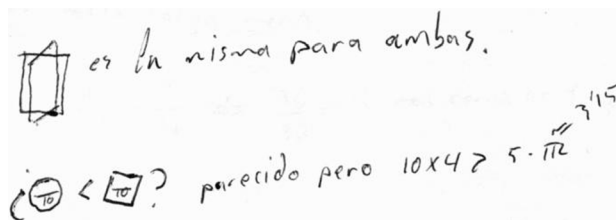 es la misma para ambas.
¿10 < 10? parecido pero 10x4 > 5·π² 3'15